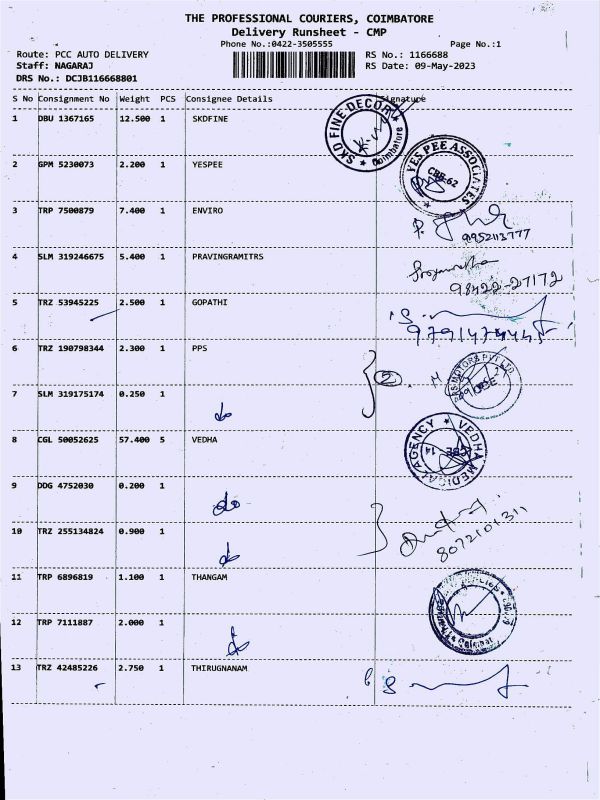 THE PROFESSIONAL COURIERS, COIMBATORE
Delivery Runsheet - CMP
Phone No.:0422-3505555 Page No.:1
Route: PCC AUTO DELIVERY RS No.: 1166688
Staff: NAGARAJ RS Date: 09-May-2023
DRS No.: DCJB116668801
S No Consignment No Weight PCS Consignee Details Signature
1 DBU 1367165 12.500 1 SKDFINE
SKD FINE DECOR Coimbatore
2 GPM 5230073 2.200 1 YESPEE
YES PEE ASSOCIATES CBE-62
3 TRP 7500879 7.400 1 ENVIRO
9952113777
4 SLM 319246675 5.400 1 PRAVINGRAMITRS
98422-27172
5 TRZ 53945225 2.500 1 GOPATHI
6 TRZ 190798344 2.300 1 PPS
2
MOTORS PVT LTD
7 SLM 319175174 0.250 1
do
8 CGL 50052625 57.400 5 VEDHA
VEDHA MEDICAL AGENCY CBE 14
9 DDG 4752030 0.200 1
do
10 TRZ 255134824 0.900 1
do
8072101311
11 TRP 6896819 1.100 1 THANGAM
12 TRP 7111887 2.000 1
do
13 TRZ 42485226 2.750 1 THIRUGNANAM